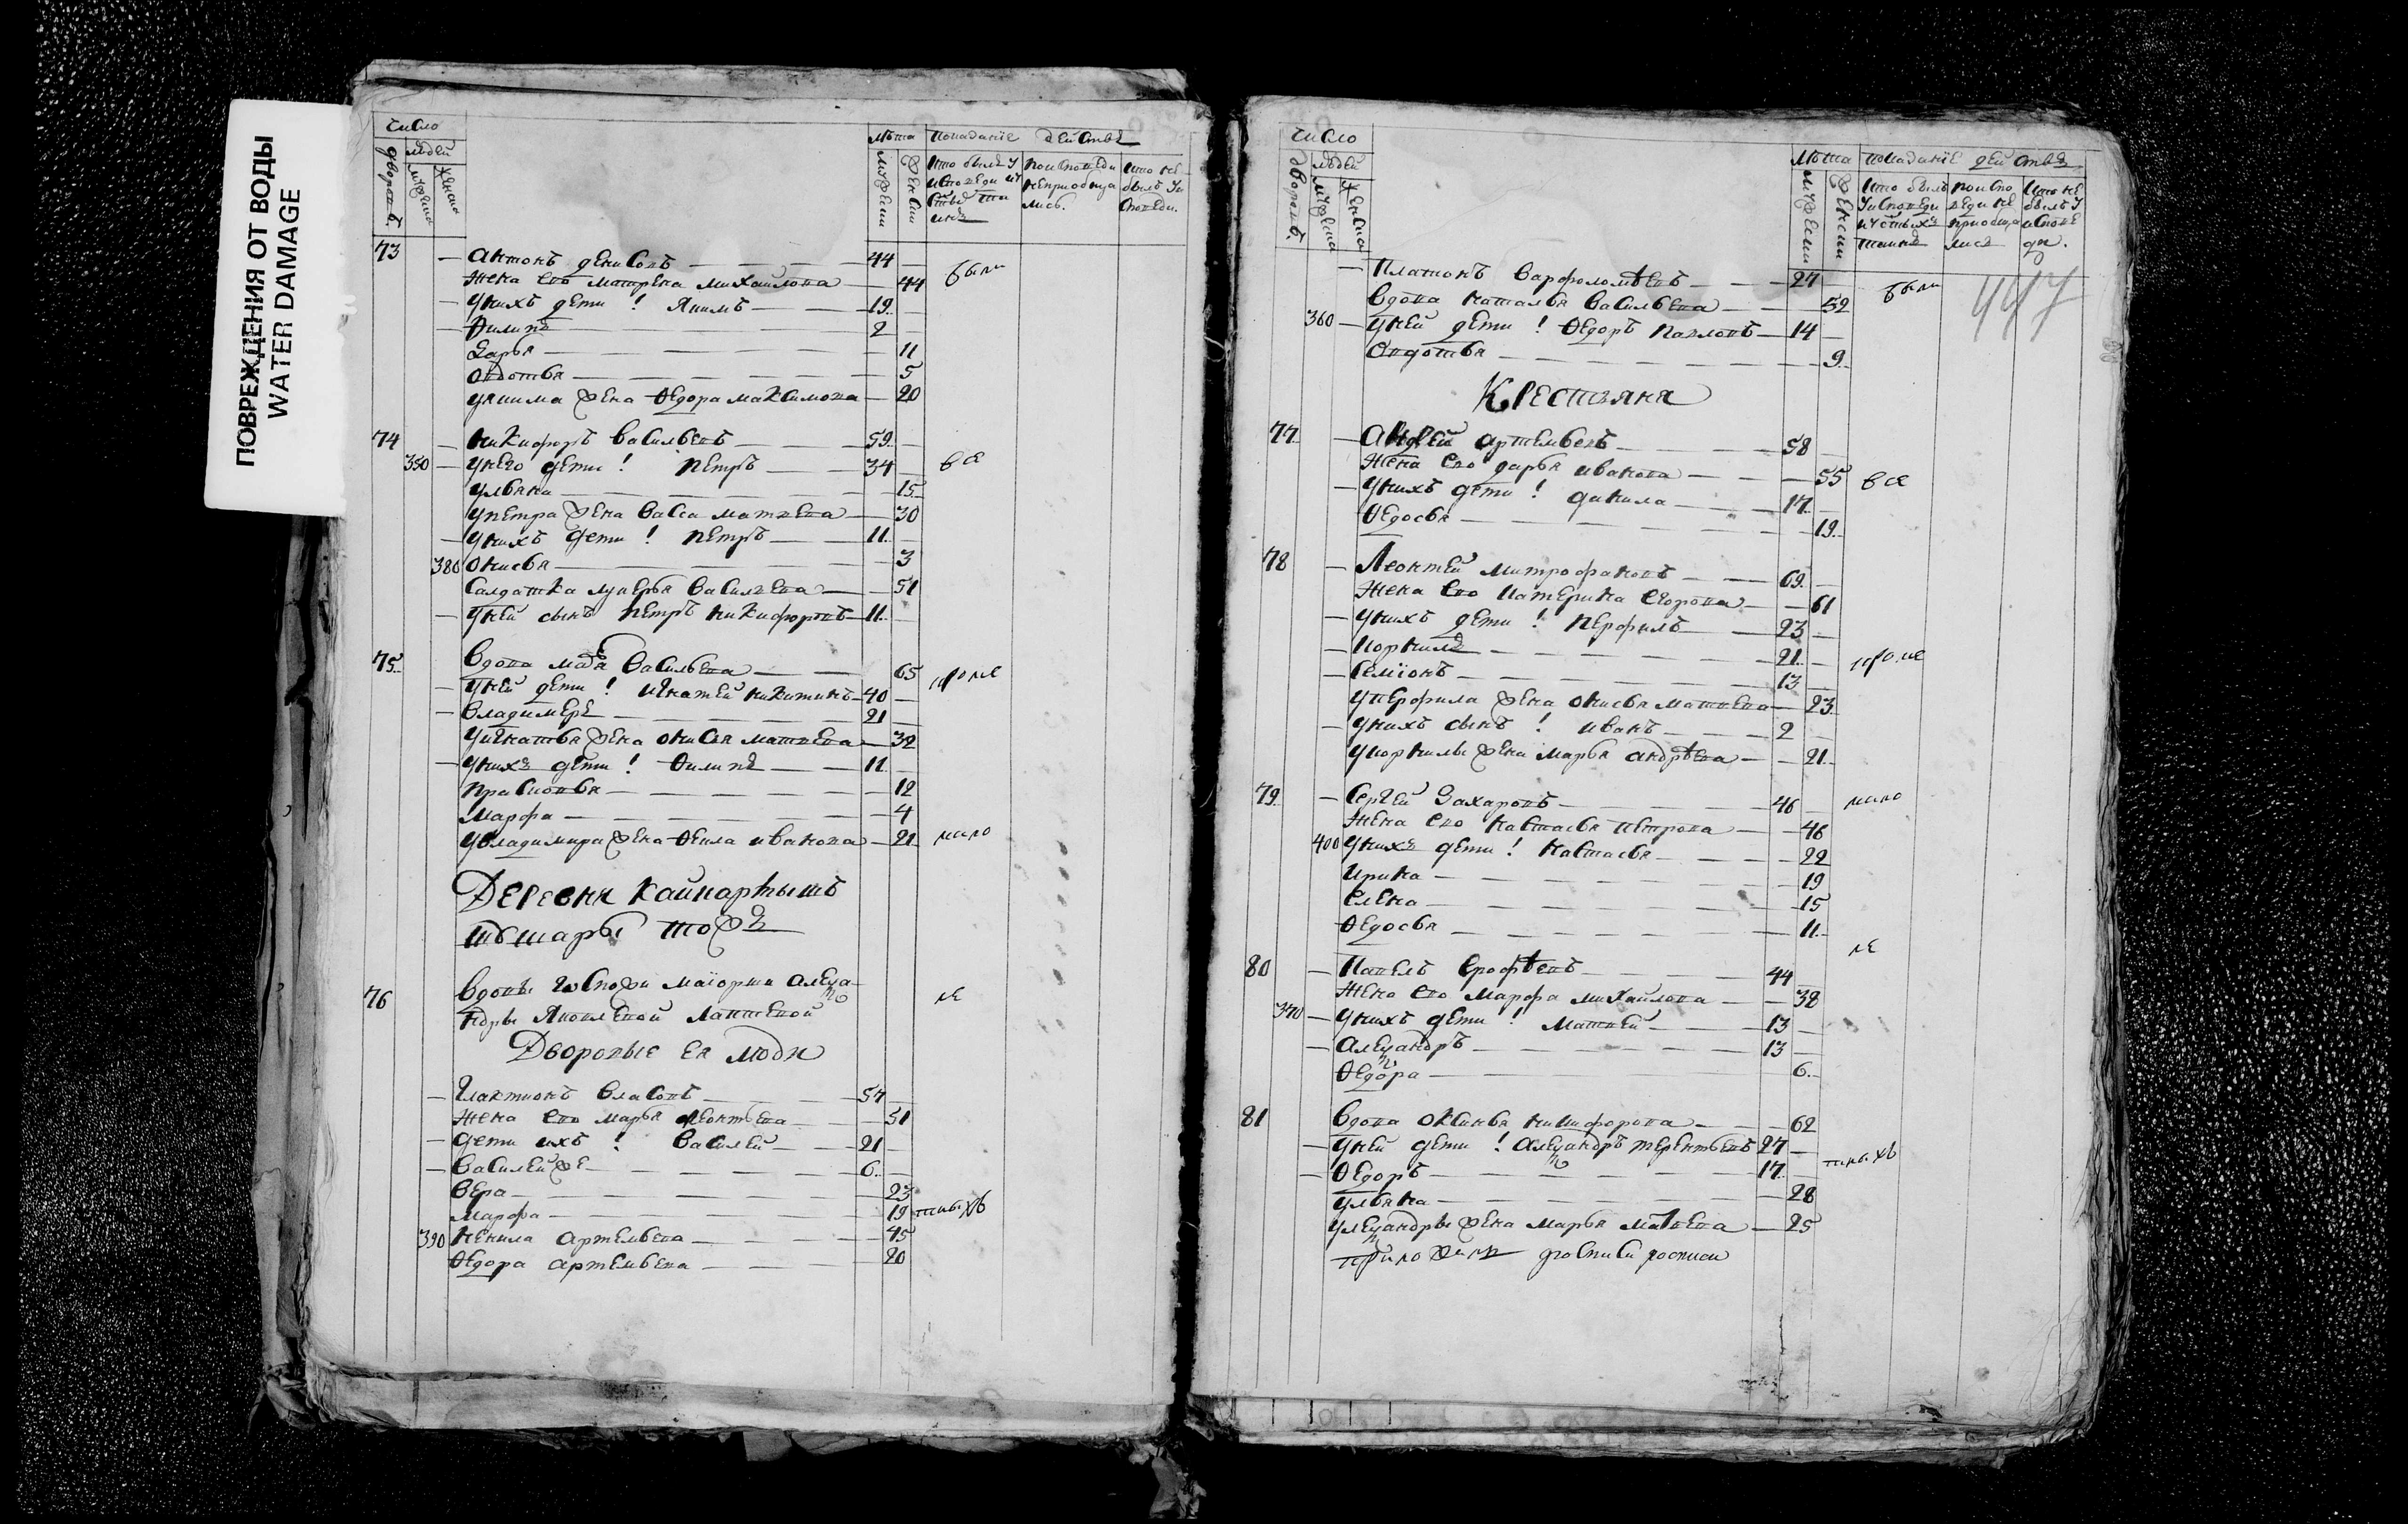 ПОВРЕЖДЕНИЯ ОТ ВОДЫ
WATER DAMAGE
число
людей
дворовъ.
мужска
женска
лѣта
мужески
женски
показанїе действъ
кто былъ у исповеди и святыхъ таинъ
кто исповеди неприобщалсь.
кто небылъ у исповеди.
73 — антонъ денисовъ — 44 —
жена ево матрена михаилова — 44 были
— унихъ дети ! Якимъ — 19 —
— Ѳилипъ — 2
дарья — 11
овдотья — 5
уякима жена Ѳедора максимова — 20
74 — никифоръ васильевъ — 59
350 — унего дети ! петръ — 34 — все
ульяна — 15
упетра жена васса матвева — 30
— унихъ дети ! петръ — 11
380 онисья — 3
салдатка лукерья васильева — 51
— уней сынъ петръ никифоровъ — 11
75 вдова васильева — 65
— уней дети ! игнатей никитинъ — 40 — кроме
— владимеръ — 21
уигнатья жена онисья матвева — 32
— унихъ дети ! Ѳилипъ — 11
прасковья — 12
марфа — 4
увладимира жена Ѳекла иванова — 21 мало
Деревня
тожъ
76 вдовы госпожи маїорши алекса
ндры Яковлевой Лаптевой ле
Дворовые ея люди
— Галактионъ власовъ — 57
жена ево марья леонтьева — 51
— дети ихъ ! василей — 21
— василей же — 6
вера — 23
марфа — 19 тныхъ
390 ненила артемьева — 45
Ѳедора артемьева — 20
число
людей
дворовъ.
мужска
женска
лѣта
мужески
женски
показанїе действъ
кто былъ у исповеди и святыхъ таинъ
кто исповеди не приобщалися
кто не былъ у исповеди.
447
— Платонъ варфоломѣевъ — 27 были
вдова наталья васильева — 52
360 — уней дети ! Ѳедоръ павловъ — 14 —
овдотья — 9
Крестьяня
77 — андрей артемьевъ — 58
жена ево дарья иванова — 55 все
— унихъ дети ! данила — 17
Ѳедосья — 19
78 — Леонтей митрофановъ — 69
жена ево катерина егорова — 61
— унихъ дети ! перфилъ — 23
— корнилъ — 21 кроме
— семїонъ — 13
уперфила жена онисья матвева — 23
— унихъ сынъ ! иванъ — 2
укорнилы жена марья андрѣева — 21
79 — сергей захаровъ — 46 мало
жена ево настасья петрова — 46
400 унихъ дети ! настасья — 22
ирина — 19
елена — 15
Ѳедосья — 11
ле
80 — Павелъ ерофѣевъ — 44
жена ево марфа михайлова — 38
370 — унихъ дети ! матвей — 13
— александръ — 13
Ѳедора — 6
81 вдова оксинья никифорова — 62
— уней дети ! александръ терентьевъ 27 —
— Ѳедоръ — 17 тныхъ
ульяна — 28
уалександры жена марья матвева — 25
росписи